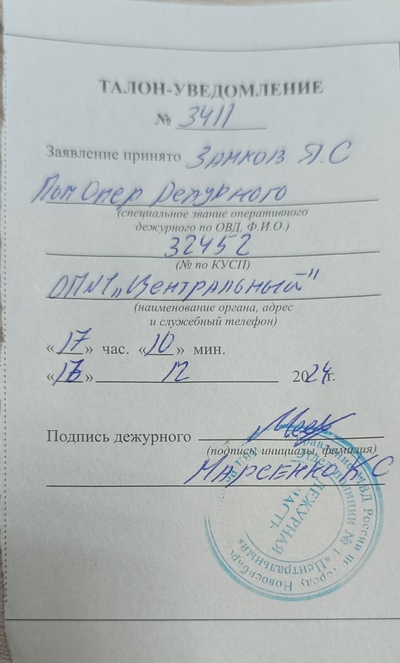 ТАЛОН-УВЕДОМЛЕНИЕ
№ 3411
Заявление принято Замков Я.С
Пом Опер Дежурного
(специальное звание оперативного
дежурного по ОВД, Ф.И.О.)
32452
(№ по КУСП)
ОП №1 „Центральный"
(наименование органа, адрес
и служебный телефон)
«17» час. «10» мин.
« » 12 2024г.
Подпись дежурного
(подпись, инициалы, фамилия)
К С
ДЕЖУРНАЯ
ЧАСТЬ
МВД России по городу Новосибирску
полиции № 1 «Центральный»